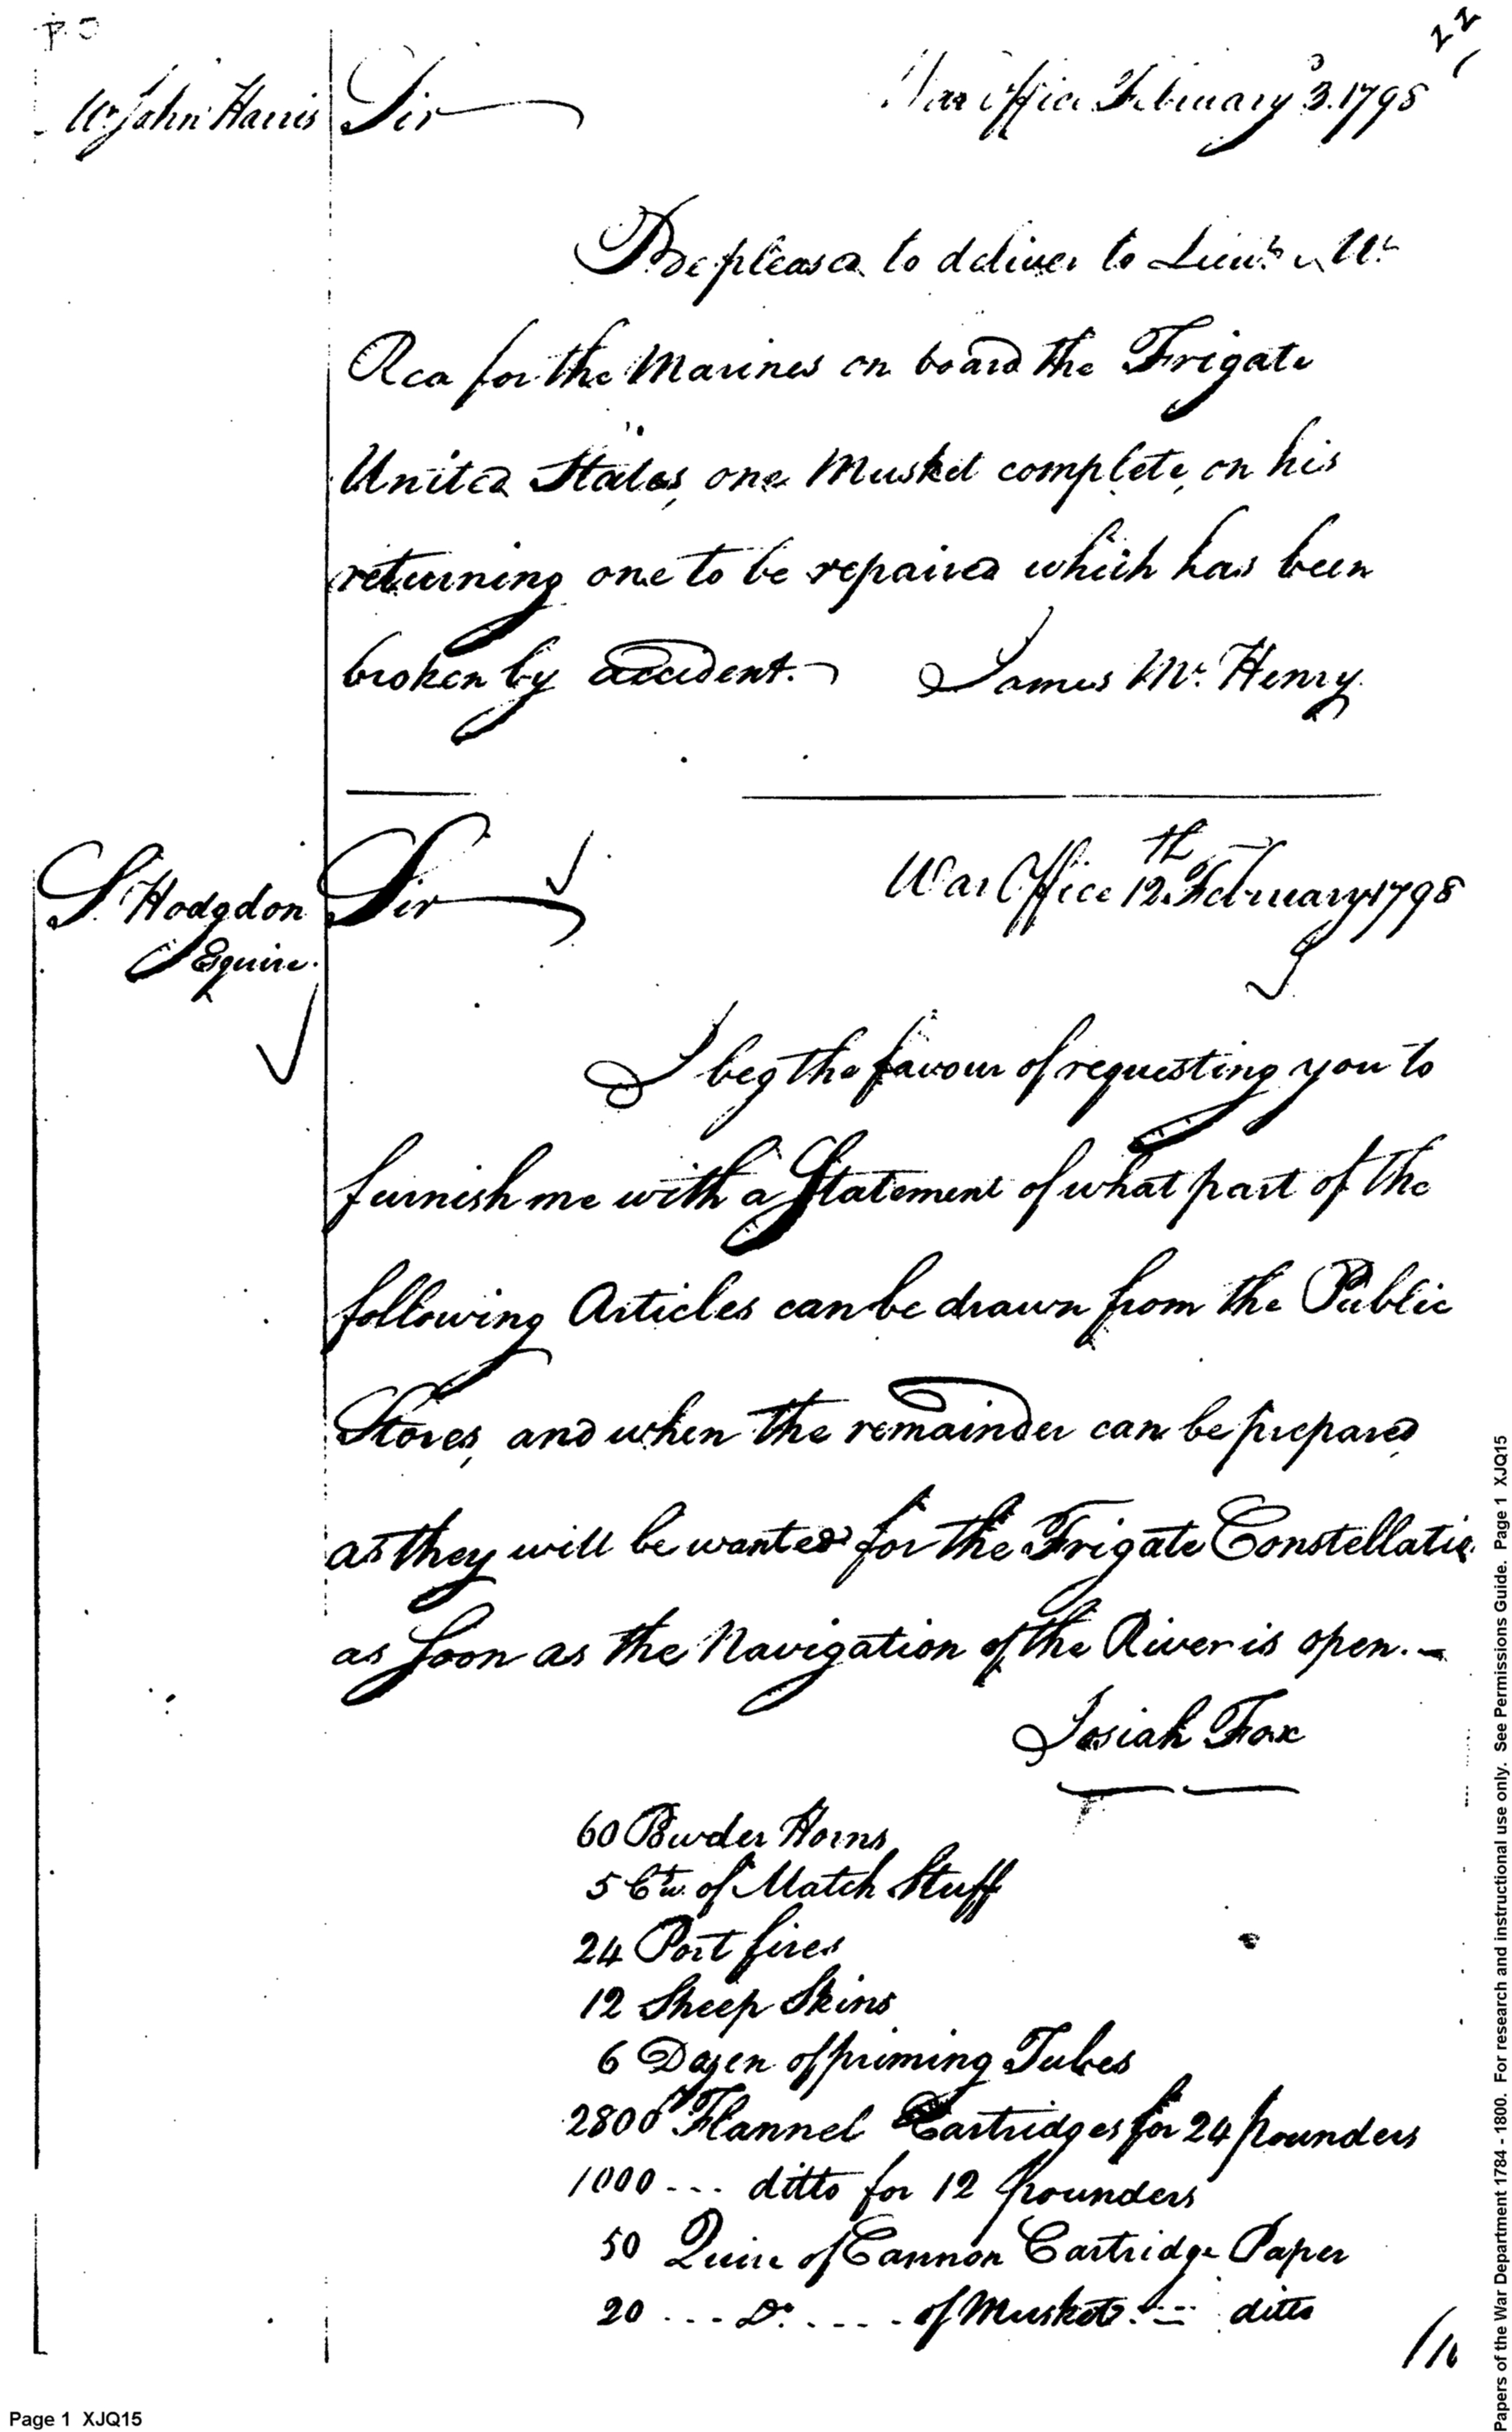 22
Mr. John Harris
Sir
War Office February 3. 1798
Be pleased to deliver to Lieut. Mc
Rea for the Marines on board the Frigate
United States, one Musket complete, on his
returning one to be repaired which has been
broken by accident.
James Mc. Henry
S. Hodgdon
Esquire.
Sir
War Office 12th February 1798
I beg the favour of requesting you to
furnish me with a Statement of what part of the
following Articles can be drawn from the Public
Stores, and when the remainder can be prepared,
as they will be wanted for the Frigate Constellatio
as soon as the Navigation of the River is open. -
Josiah Fox
60 Powder Horns
5 Ctw. of Match Stuff
24 Port fires
12 Sheep Skins
6 Dozen of priming Tubes
2800 Flannel Cartridges for 24 pounders
1000 --- ditto for 12 pounders
50 Quire of Cannon Cartridge Paper
20 --- Do. ---- of Musket --- ditto
Page 1 XJQ15
Papers of the War Department 1784 - 1800. For research and instructional use only. See Permissions Guide. Page 1 XJQ15